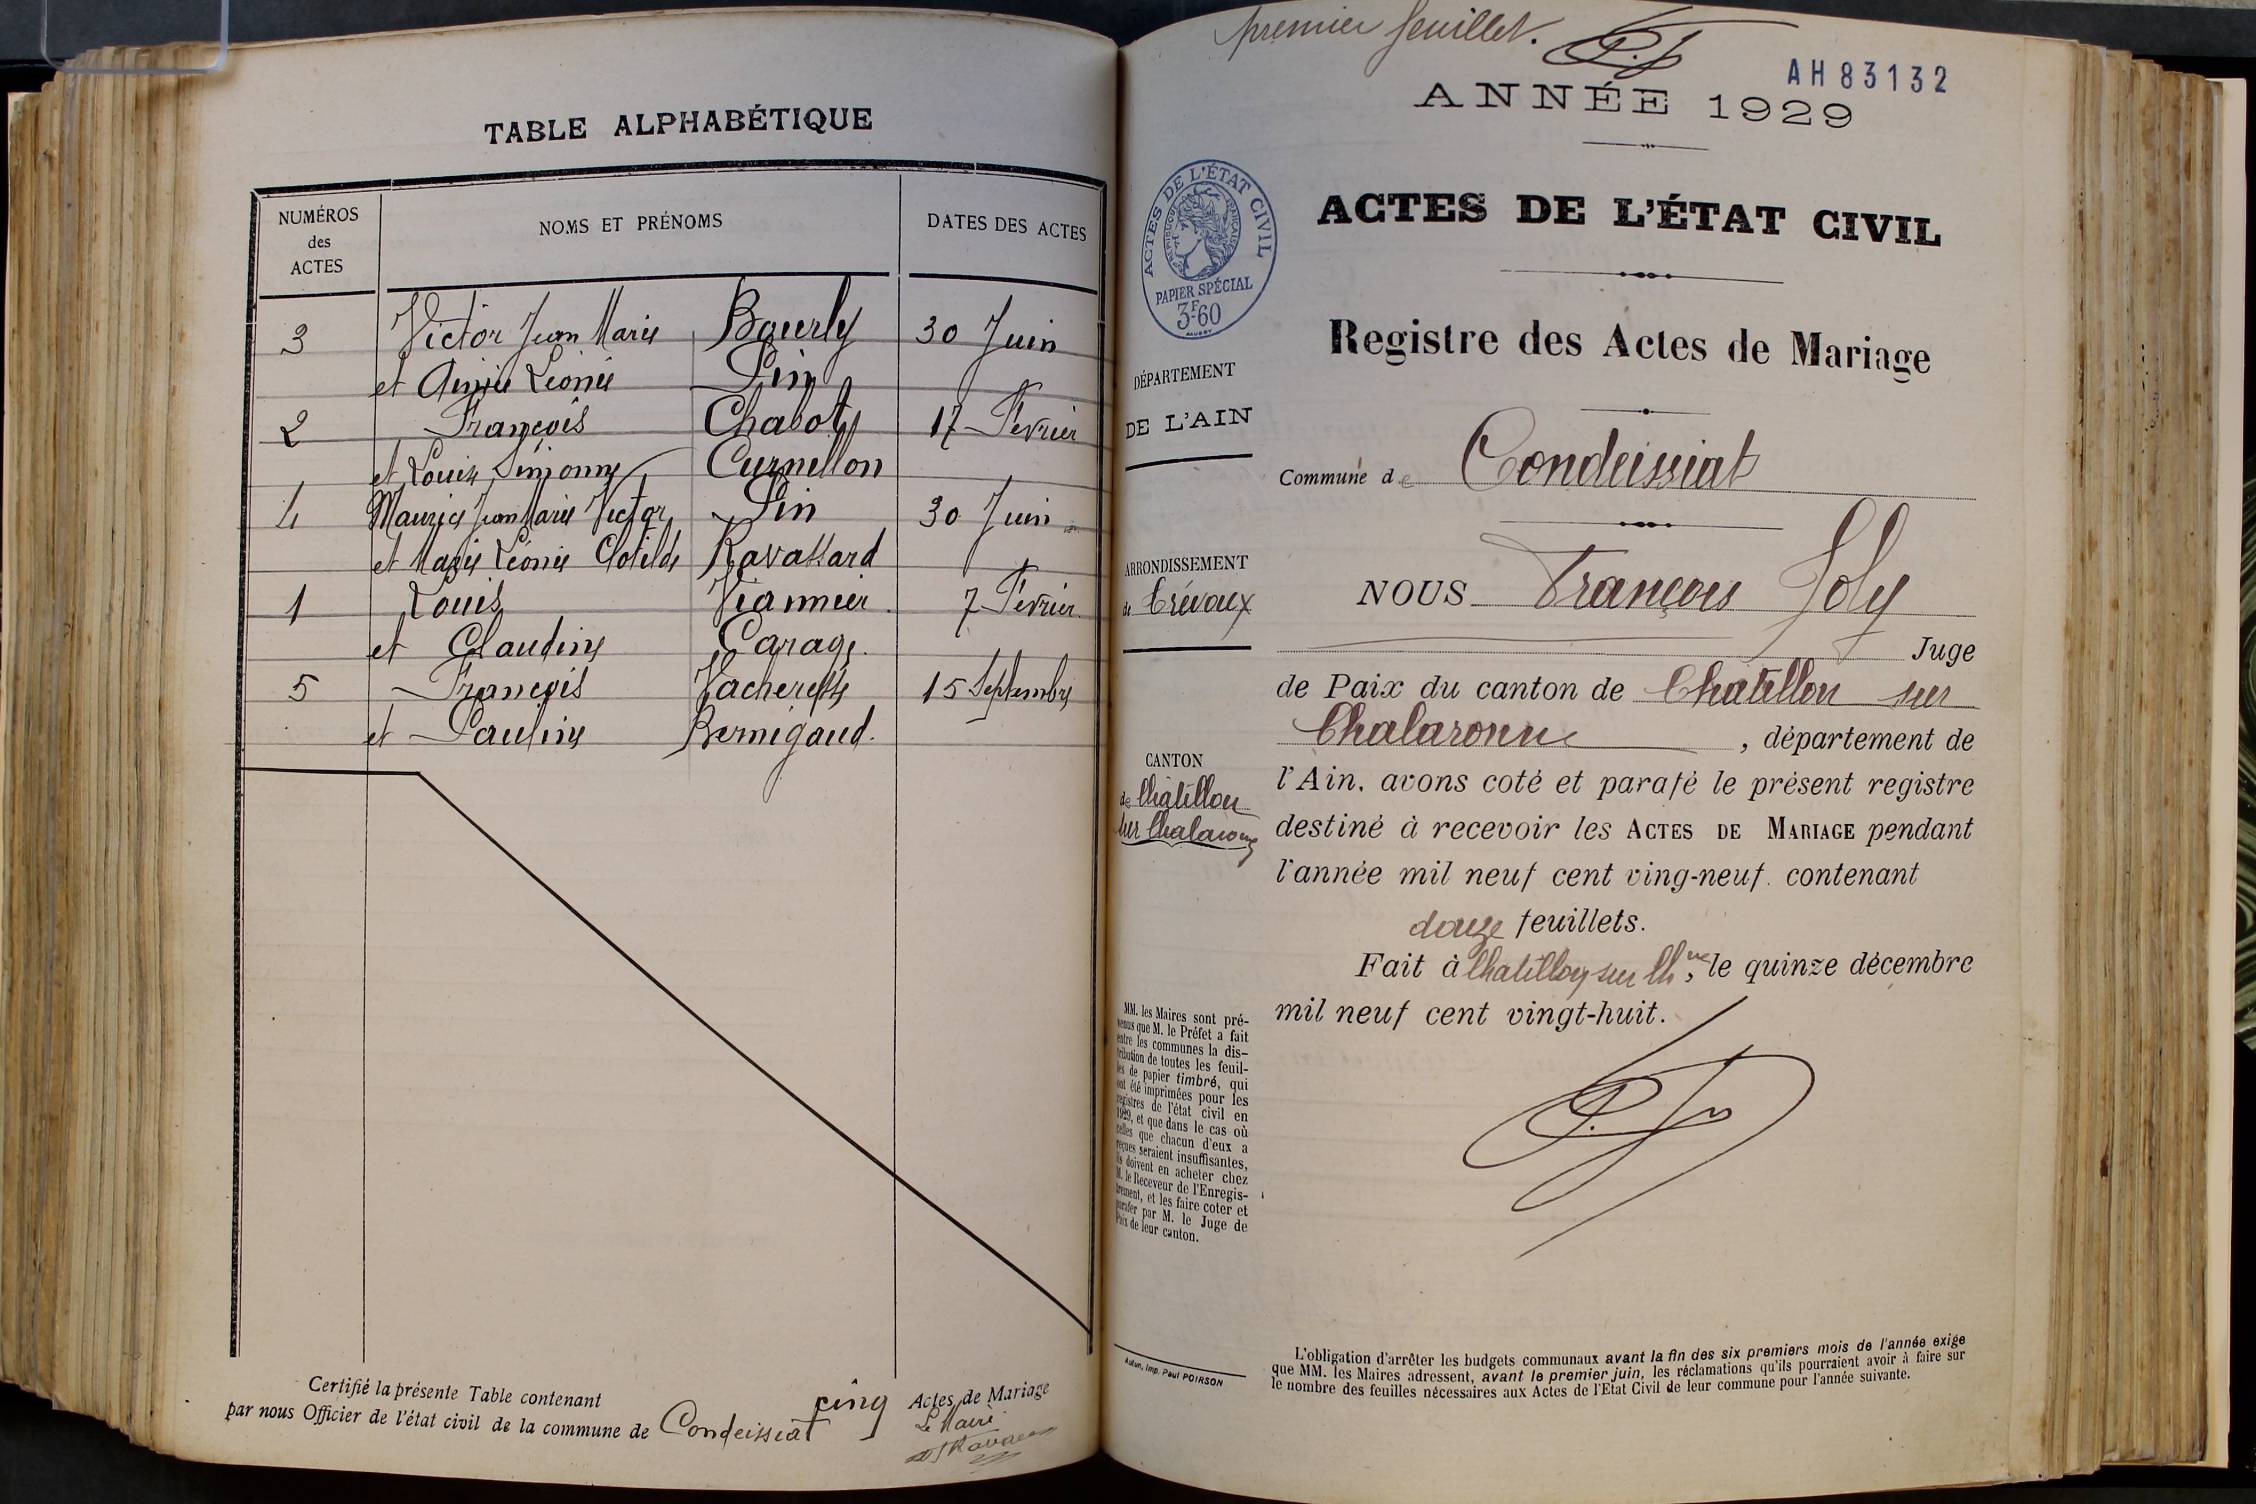 TABLE ALPHABÉTIQUE
NUMÉROS des ACTES NOMS ET PRÉNOMS DATES DES ACTES
3 Victor Jean Marie Bourly 30 Juin
et Léonie Pin
2 François Chaboty 17 Février
et Louise Curnillon
4 Maurice Jean Marie Victor Pin 30 Juin
et Marie Léonie Clotilde Ravassard
1 Louis Viannier 7 Février
et Claudine Carage
5 François Vacheresse 15 Septembre
et Pauline Bernigaud.
Certifié la présente Table contenant cinq Actes de Mariage
par nous Officier de l'état civil de la commune de Condeissiat
Le Maire
premier feuillet.
AH83132
ANNÉE 1929
ACTES DE L'ÉTAT CIVIL
RÉPUBLIQUE FRANÇAISE
PAPIER SPÉCIAL
3F60
ACTES DE L'ÉTAT CIVIL
Registre des Actes de Mariage
DÉPARTEMENT
DE L'AIN
Commune de Condeissiat
ARRONDISSEMENT
de Trévoux
NOUS François Joly
Juge
de Paix du canton de Chatillon sur
Chalaronne, département de
CANTON
de Châtillon
sur Chalaronne
l'Ain, avons coté et parafé le présent registre
destiné à recevoir les ACTES DE MARIAGE pendant
l'année mil neuf cent ving-neuf. contenant
douze feuillets.
Fait à Chatillon sur Chne, le quinze décembre
mil neuf cent vingt-huit.
MM. les Maires sont pré-
venus que M. le Préfet a fait
entre les communes la dis-
tribution de toutes les feuil-
les de papier timbré, qui
ont été imprimées pour les
registres de l'état civil en
1929, et que dans le cas où
celles que chacun d'eux a
reçues seraient insuffisantes,
ils doivent en acheter chez
M. le Receveur de l'Enregis-
trement, et les faire coter et
parafer par M. le Juge de
Paix de leur canton.
Autun, Imp. Paul POIRSON
L'obligation d'arrêter les budgets communaux avant la fin des six premiers mois de l'année exige
que MM. les Maires adressent, avant le premier juin, les réclamations qu'ils pourraient avoir à faire sur
le nombre des feuilles nécessaires aux Actes de l'Etat Civil de leur commune pour l'année suivante.